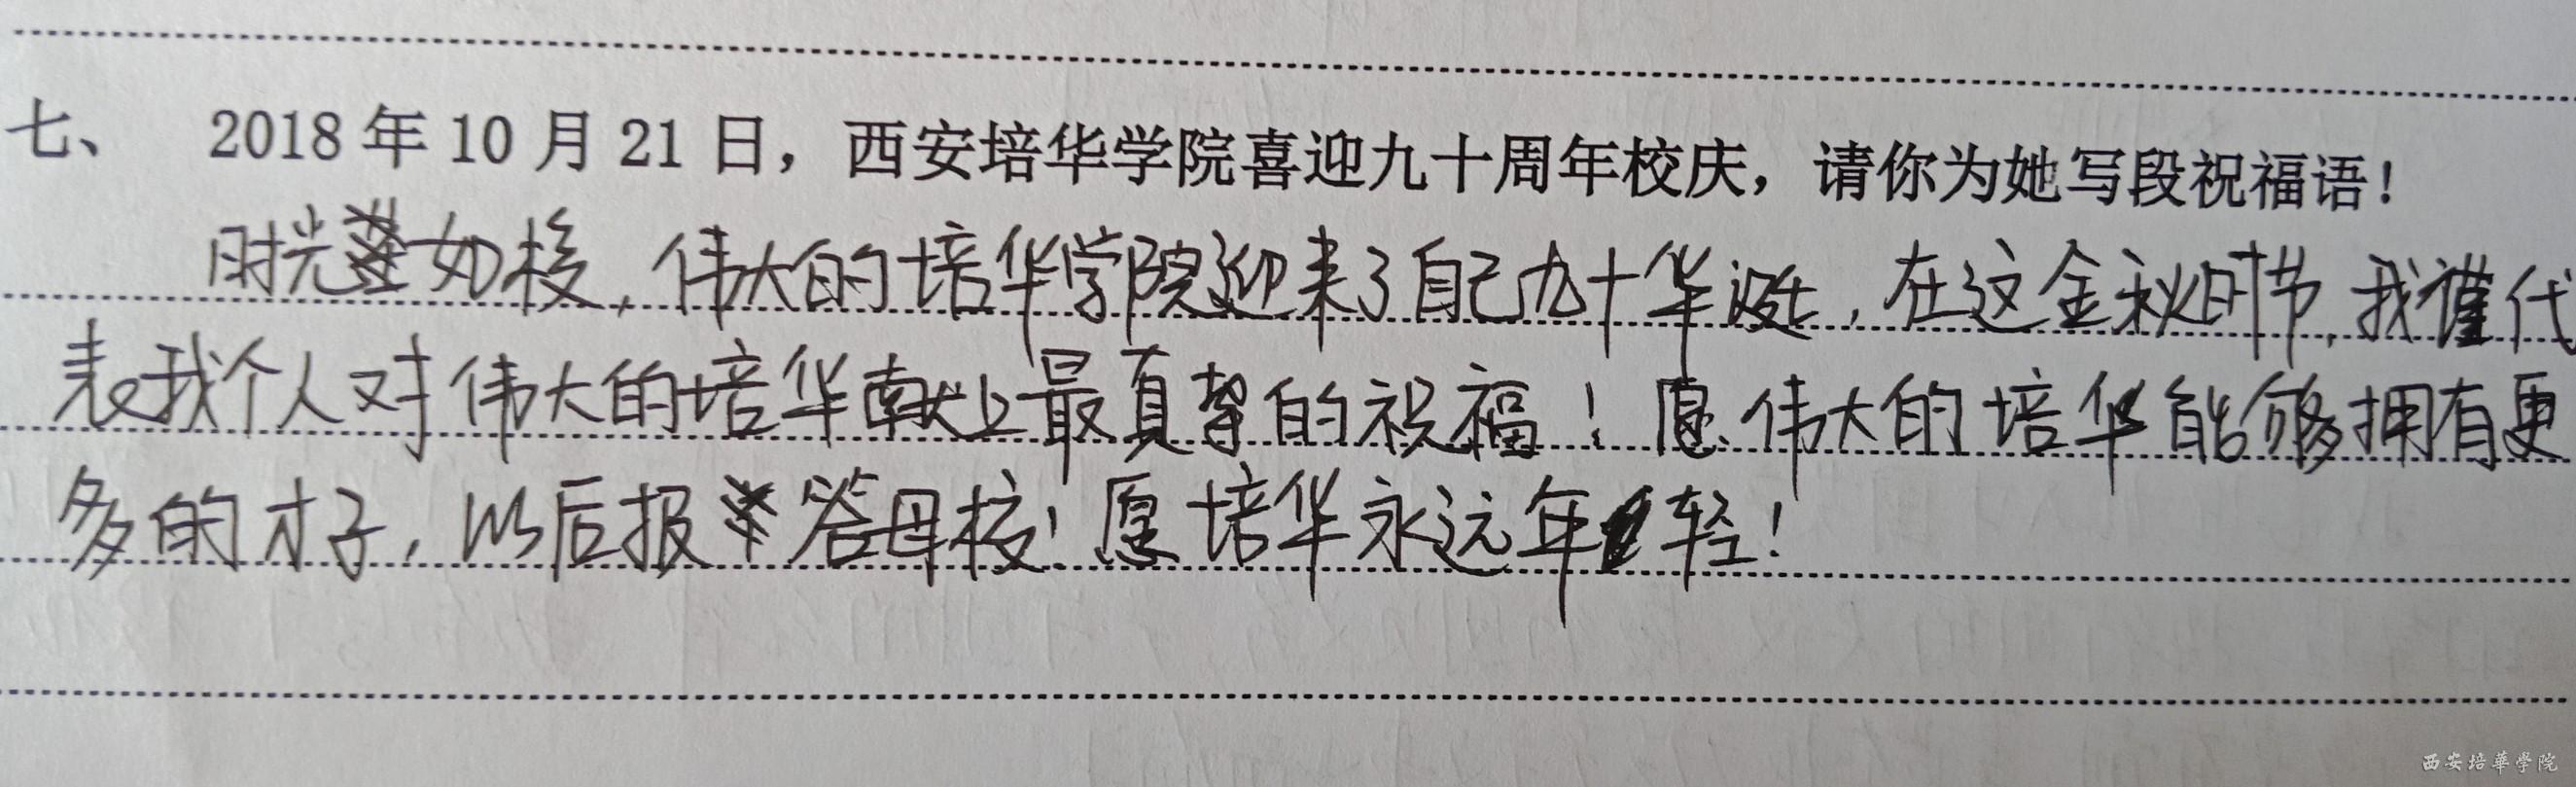 七、 2018年10月21日，西安培华学院喜迎九十周年校庆，请你为她写段祝福语！
时光如梭，伟大的培华学院迎来了自己九十华诞，在这金秋时节，我谨代
表我个人对伟大的培华献上最真挚的祝福！愿伟大的培华能够拥有更
多的才子，以后报答母校！愿培华永远年轻！
西安培華学院